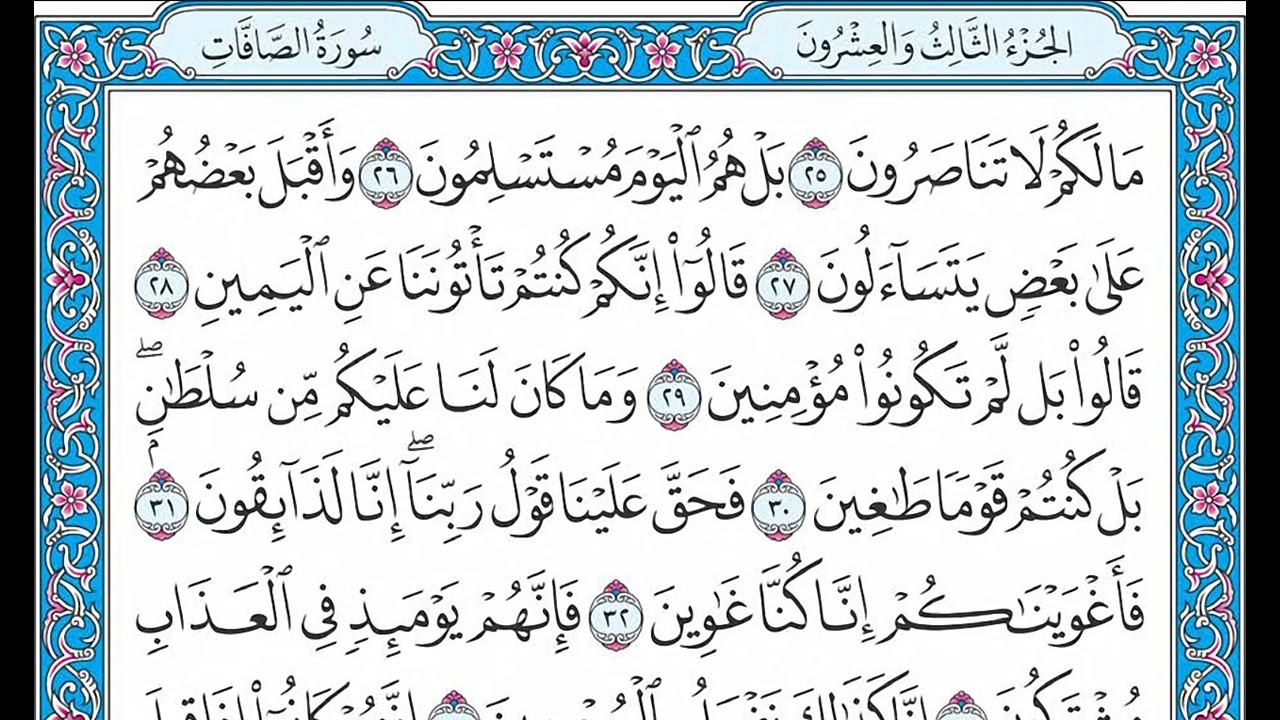 الجُزْءُ الثَّالِثُ وَالعِشْرُونَ
سُورَةُ الصَّافَّاتِ
مَا لَكُمْ لَا تَنَاصَرُونَ ٢٥ بَلْ هُمُ ٱلْيَوْمَ مُسْتَسْلِمُونَ ٢٦ وَأَقْبَلَ بَعْضُهُمْ
عَلَىٰ بَعْضٍ يَتَسَآءَلُونَ ٢٧ قَالُوٓا۟ إِنَّكُمْ كُنتُمْ تَأْتُونَنَا عَنِ ٱلْيَمِينِ ٢٨
قَالُوا۟ بَل لَّمْ تَكُونُوا۟ مُؤْمِنِينَ ٢٩ وَمَا كَانَ لَنَا عَلَيْكُم مِّن سُلْطَٰنٍۭ ۖ
بَلْ كُنتُمْ قَوْمًا طَٰغِينَ ٣٠ فَحَقَّ عَلَيْنَا قَوْلُ رَبِّنَآ ۖ إِنَّا لَذَآئِقُونَ ٣١
فَأَغْوَيْنَٰكُمْ إِنَّا كُنَّا غَٰوِينَ ٣٢ فَإِنَّهُمْ يَوْمَئِذٍ فِى ٱلْعَذَابِ